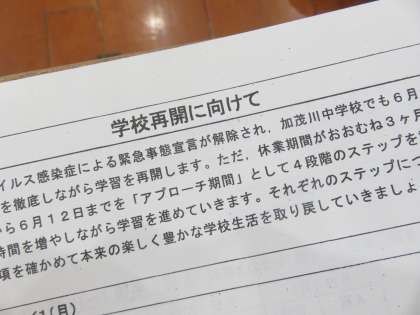 学校再開に向けて
イルス感染症による緊急事態宣言が解除され，加茂川中学校でも６月
を徹底しながら学習を再開します。ただ，休業期間がおおむね３ヶ月
から６月１２日までを「アプローチ期間」として４段階のステップを
時間を増やしながら学習を進めていきます。それぞれのステップにつ
項を確かめて本来の楽しく豊かな学校生活を取り戻していきましょ
(月)